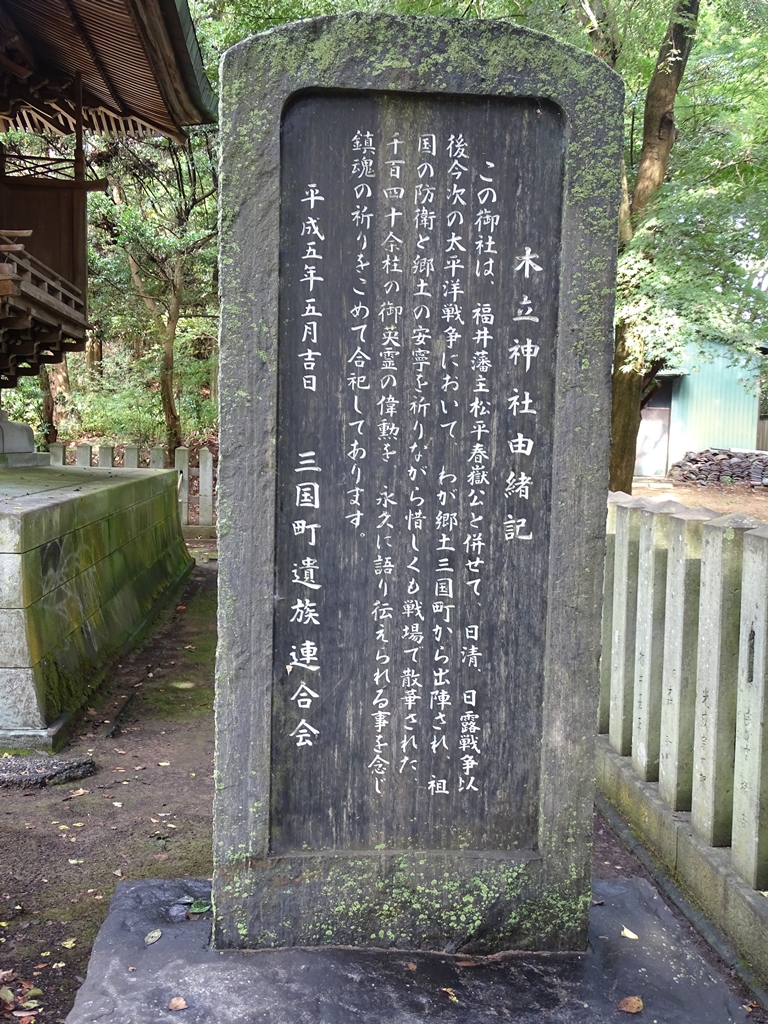 木立神社由緒記
この御社は、福井藩主松平春嶽公と併せて、日清、日露戦争以
後今次の太平洋戦争において、わが郷土三国町から出陣され、祖
国の防衛と郷土の安寧を祈りながら惜しくも戦場で散華された、
千百四十余柱の御英霊の偉勲を、永久に語り伝えられる事を念じ
鎮魂の祈りをこめて合祀してあります。
平成五年五月吉日 三国町遺族連合会